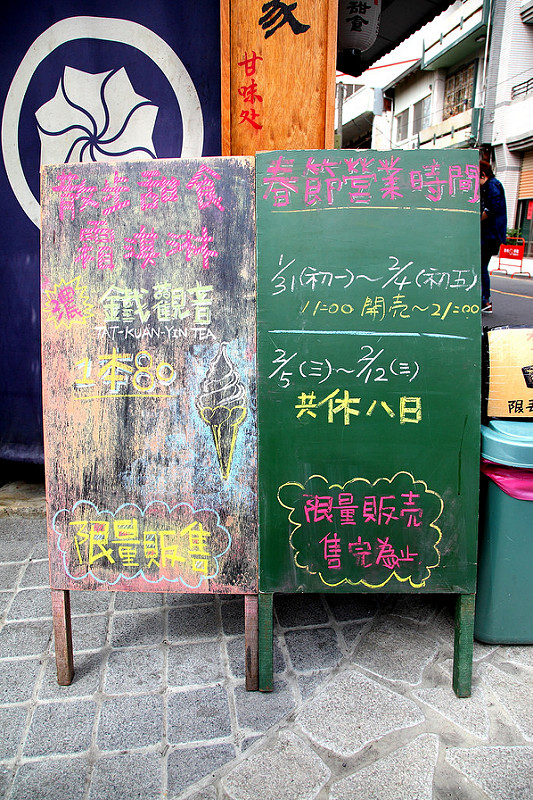 家
甜食
甘味处
散步甜食
霜淇淋
濃
鐵觀音
TAT-KUAN-YIN TEA
1本80
限量販售
春節營業時間
1/31(初一)~2/4(初五)
11:00 開売~21:00
2/5(三)~2/12(三)
共休八日
限量販売
售完為止
限